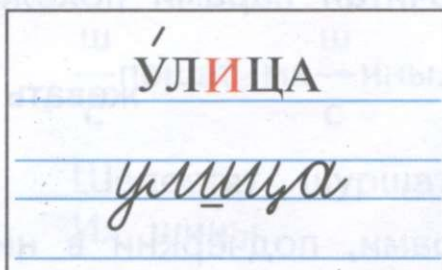 У́ЛИЦА
улица